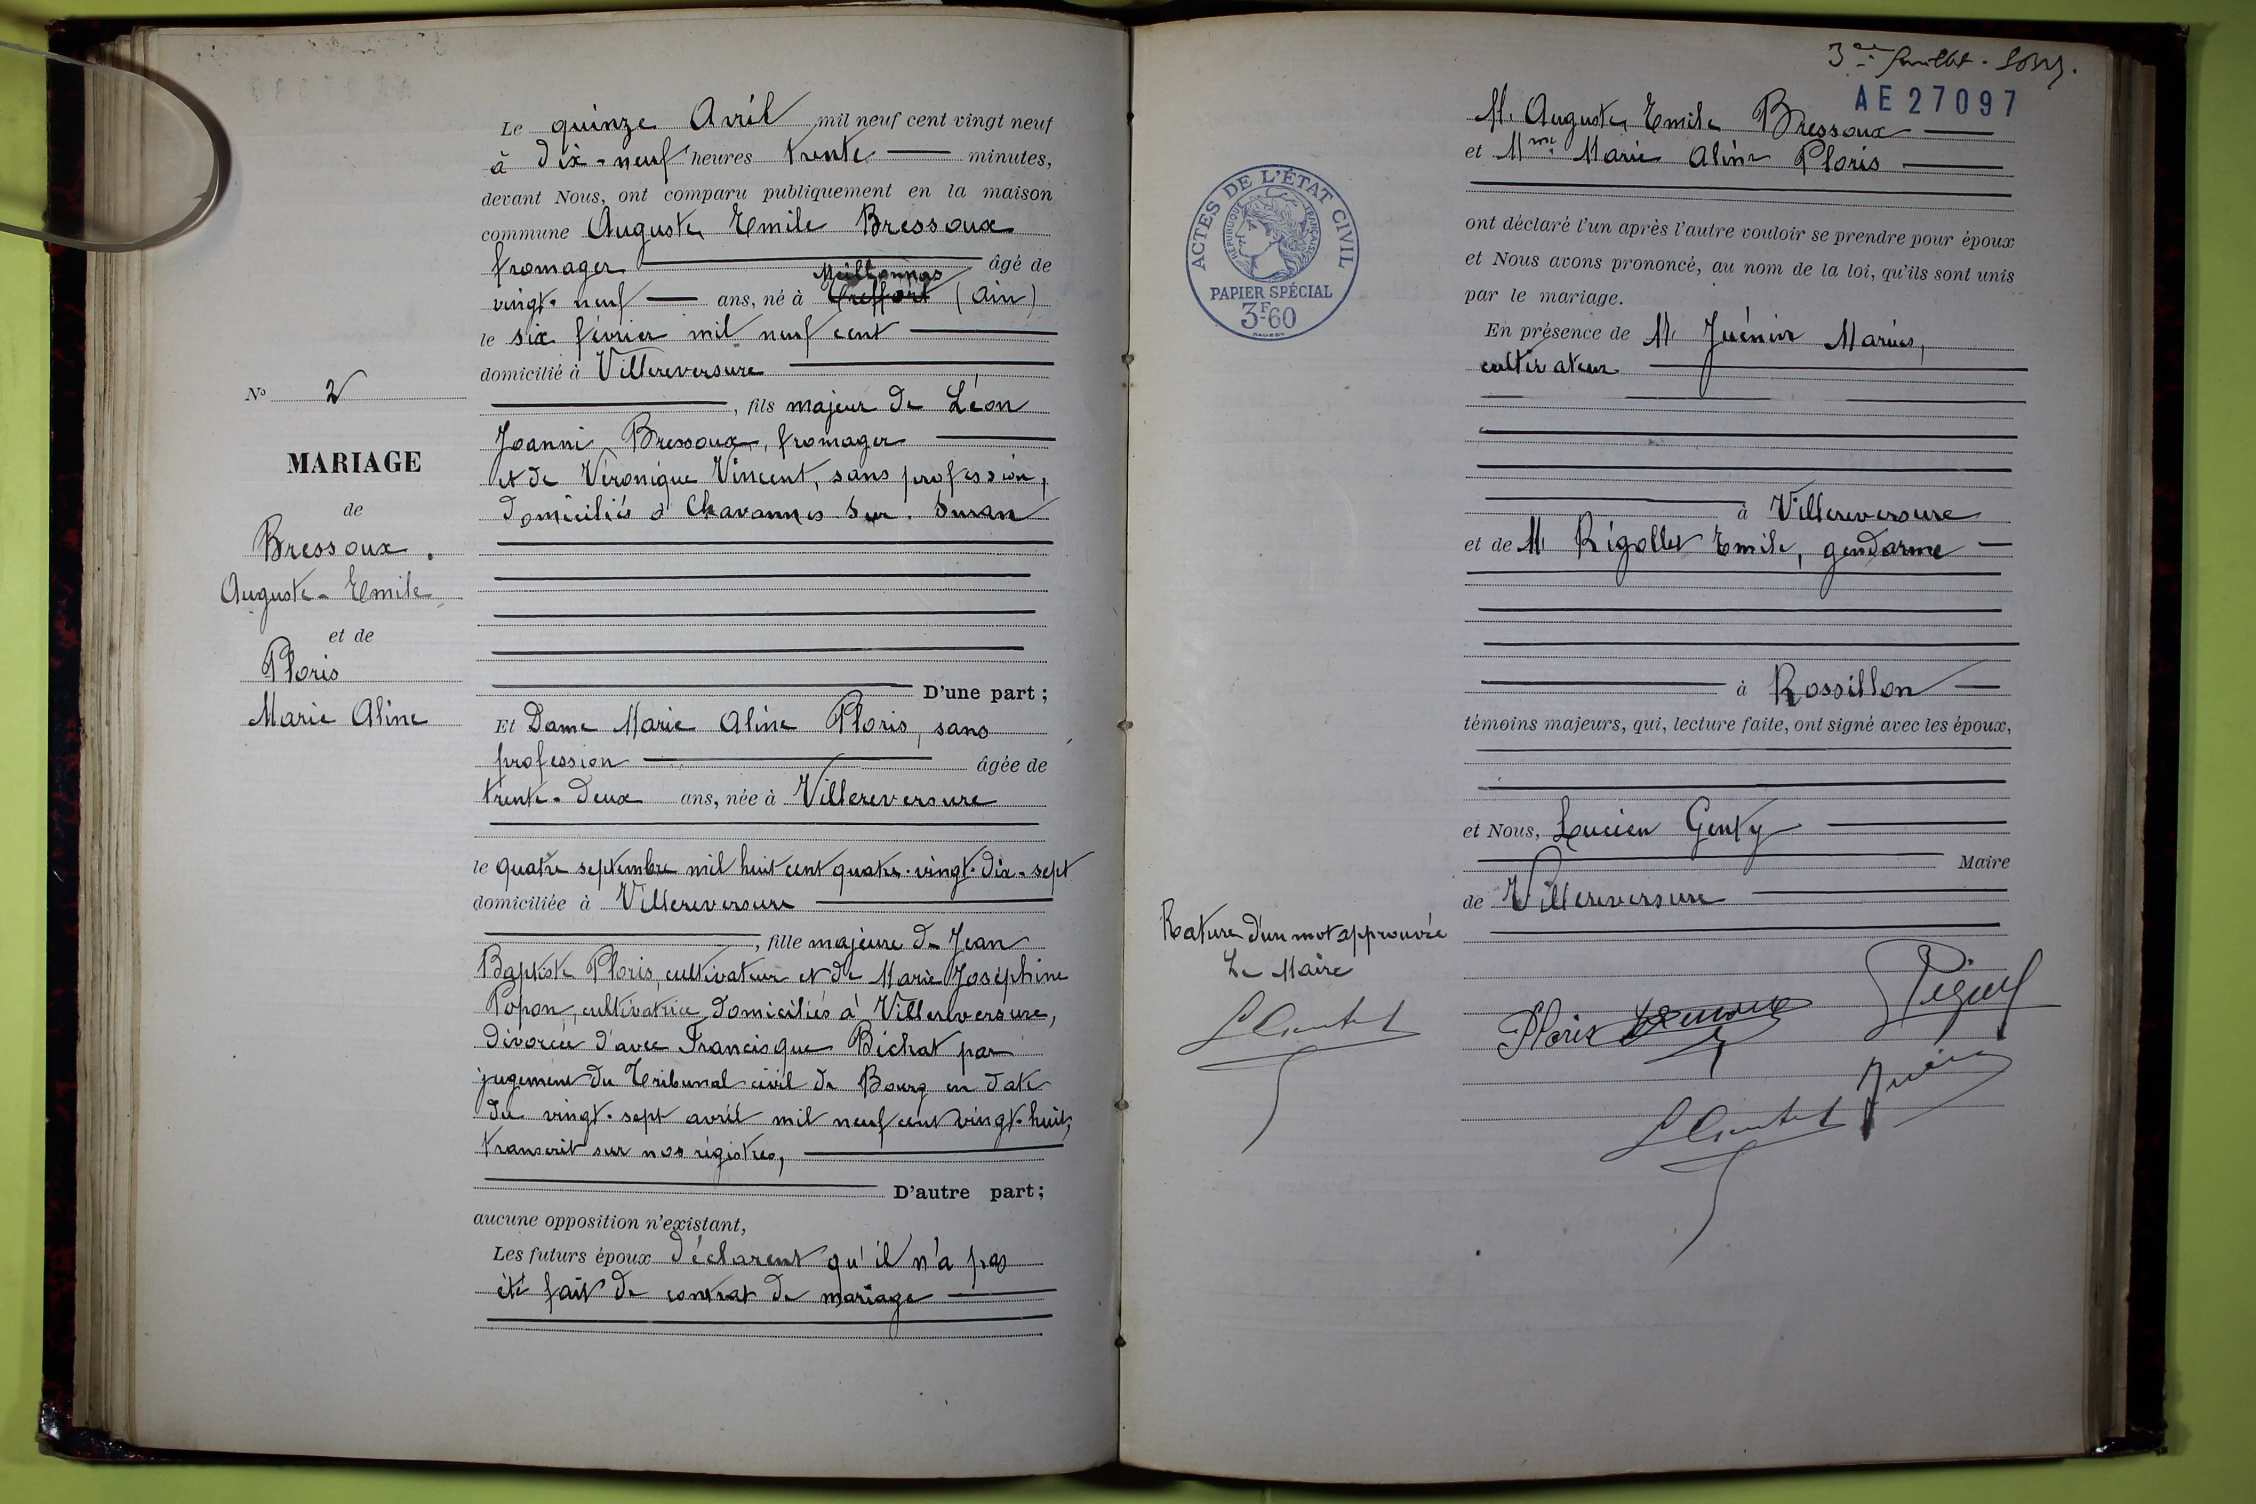 Le quinze Avril mil neuf cent vingt neuf
à dix-neuf heures trente minutes,
devant Nous, ont comparu publiquement en la maison
commune Auguste Emile Bressoux
fromager âgé de
Meillonnas
vingt-neuf ans, né à Treffort (Ain)
le six février mil neuf cent
domicilié à Villereversure
, fils majeur de Léon
Joanni Bressoux, fromager
et de Véronique Vincent, sans profession,
domiciliés à Chavannes sur Suran
D'une part ;
Et Dame Marie Aline Ploris, sans
profession âgée de
trente-deux ans, née à Villereversure
le quatre septembre mil huit cent quatre-vingt-dix-sept
domiciliée à Villereversure
, fille majeure de Jean
Baptiste Ploris, cultivateur et de Marie Joséphine
Popon, cultivatrice domiciliés à Villereversure,
divorcée d'avec Francisque Bichat par
jugement du Tribunal civil de Bourg en date
du vingt-sept avril mil neuf cent vingt-huit,
transcrit sur nos régistres,
D'autre part ;
aucune opposition n'existant,
Les futurs époux déclarent qu'il n'a pas
été fait de contrat de mariage
No 2
MARIAGE
de
Bressoux.
Auguste-Emile
et de
Ploris
Marie Aline
AE 27097
M. Auguste Emile Bressoux
et Mme Marie Aline Ploris
ont déclaré l'un après l'autre vouloir se prendre pour époux
et Nous avons prononcé, au nom de la loi, qu'ils sont unis
par le mariage.
En présence de M. Juénin Marius,
cultivateur
à Villereversure
et de M. Rigollet Emile, gendarme
à Rossillon
témoins majeurs, qui, lecture faite, ont signé avec les époux,
et Nous, Lucien Genty
Maire
de Villereversure
Ploris
ACTES DE L'ÉTAT CIVIL
RÉPUBLIQUE FRANÇAISE
PAPIER SPÉCIAL
3F60
Rature d'un mot approuvée
Le Maire